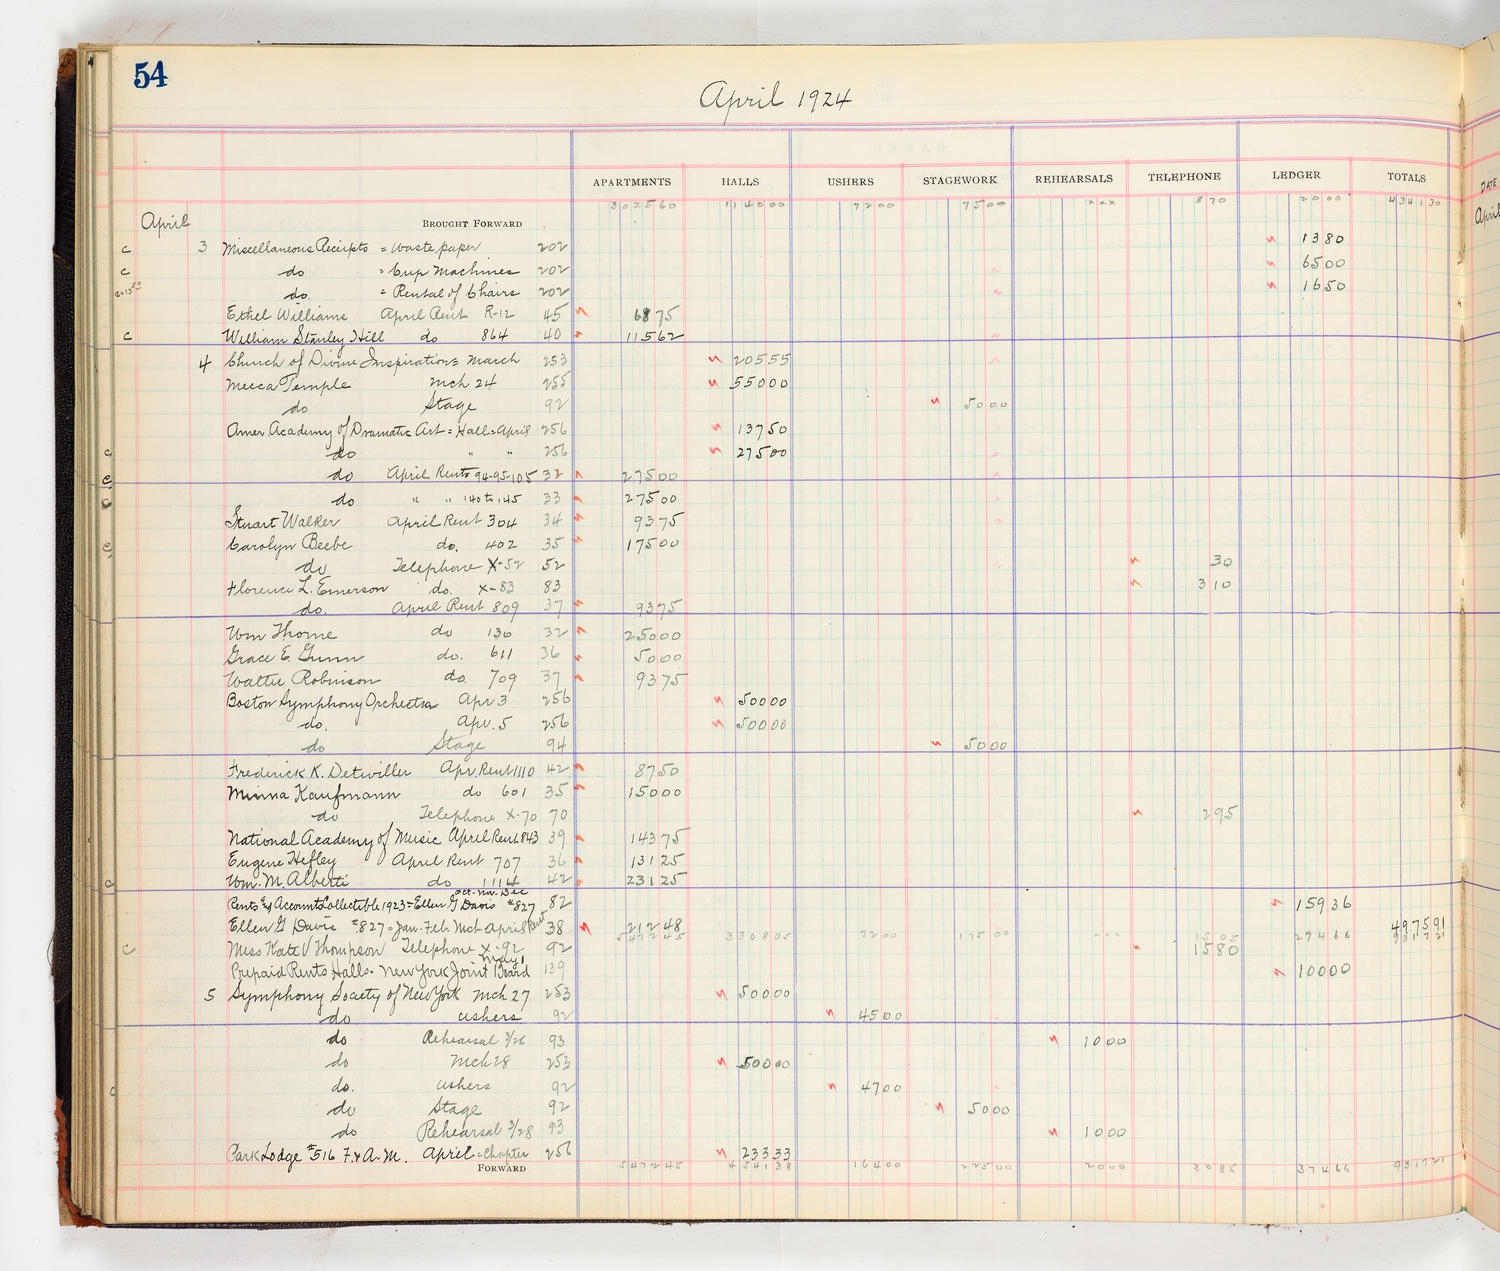 54
April 1924
APARTMENTS HALLS USHERS STAGEWORK REHEARSALS TELEPHONE LEDGER TOTALS
302560 114000 7200 7500 xxx 870 2000 434130
April BROUGHT FORWARD
c 3 Miscellaneous Receipts = Waste paper 202 1380
c do = Cup Machines 202 6500
do. = Rental of Chairs 202 1650
Ethel Williams April Rent R-12 45 6875
c William Stanley Hill do 864 40 11562
4 Church of Divine Inspiration = March 253 20555
Mecca Temple Mch 24 255 55000
do Stage 92 5000
Amer Academy of Dramatic Art = Hall = April 256 13750
c do " " 256 27500
c do April Rents 94-95-105 32 27500
c do " " 140 to 145 33 27500
Stuart Walker April Rent 304 34 9375
c Carolyn Beebe do. 402 35 17500
do Telephone X-52 52 30
Florence L. Emerson do. X-83 83 310
do. April Rent 809 37 9375
Wm Thorne do 130 32 25000
Grace E. Gunn do. 611 36 5000
Walter Robinson do. 709 37 9375
Boston Symphony Orchestra Apr 3 256 50000
do. Apr. 5 256 50000
do Stage 94 5000
Frederick K. Detwiller Apr. Rent 1110 42 8750
Minna Kaufmann do 601 35 15000
do Telephone X-70 70 295
National Academy of Music April Rent 843 39 14375
Eugene Hefley April Rent 707 36 13125
c Wm. M. Alberti do 1114 42 23125
Oct. Nov. Dec
Rents & Accounts Collectible 1923 = Ellen G Davis #827 82 15936
Ellen G Davis #827 = Jan. Feb. Mch April Rent 38 21248 497591
547245 330805 7200 17500 1505 27466 931721
c Miss Kate V Thompson Telephone X-92 92 1580
May 1
Prepaid Rents Halls - New York Joint Board 139 10000
5 Symphony Society of New York Mch 27 253 50000
do ushers 92 4500
do Rehearsal 3/26 93 1000
do Mch 28 253 50000
c do. ushers 92 4700
do Stage 92 5000
do Rehearsal 3/28 93 1000
Park Lodge #516 F. & A. M. April = Chapter 256 23333
FORWARD 547245 454138 16400 22500 2000 3085 37466 931721
DATE
April